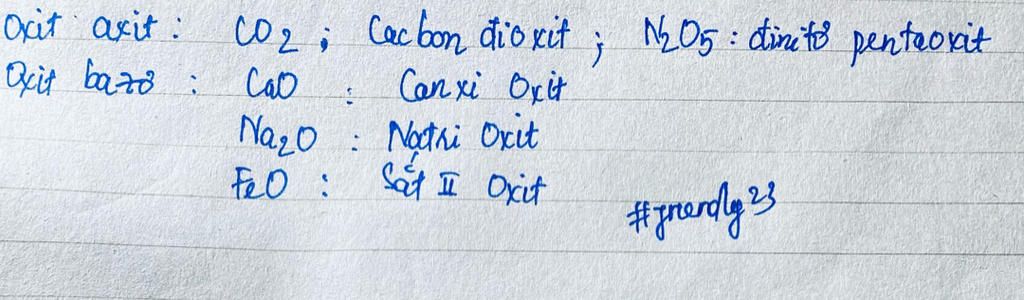 Oxit axit : CO2 ; Cacbon đioxit ; N2O5 : đinitơ pentaoxit
Oxit bazơ : CaO : Canxi Oxit
Na2O : Natri Oxit
FeO : Sắt II Oxit